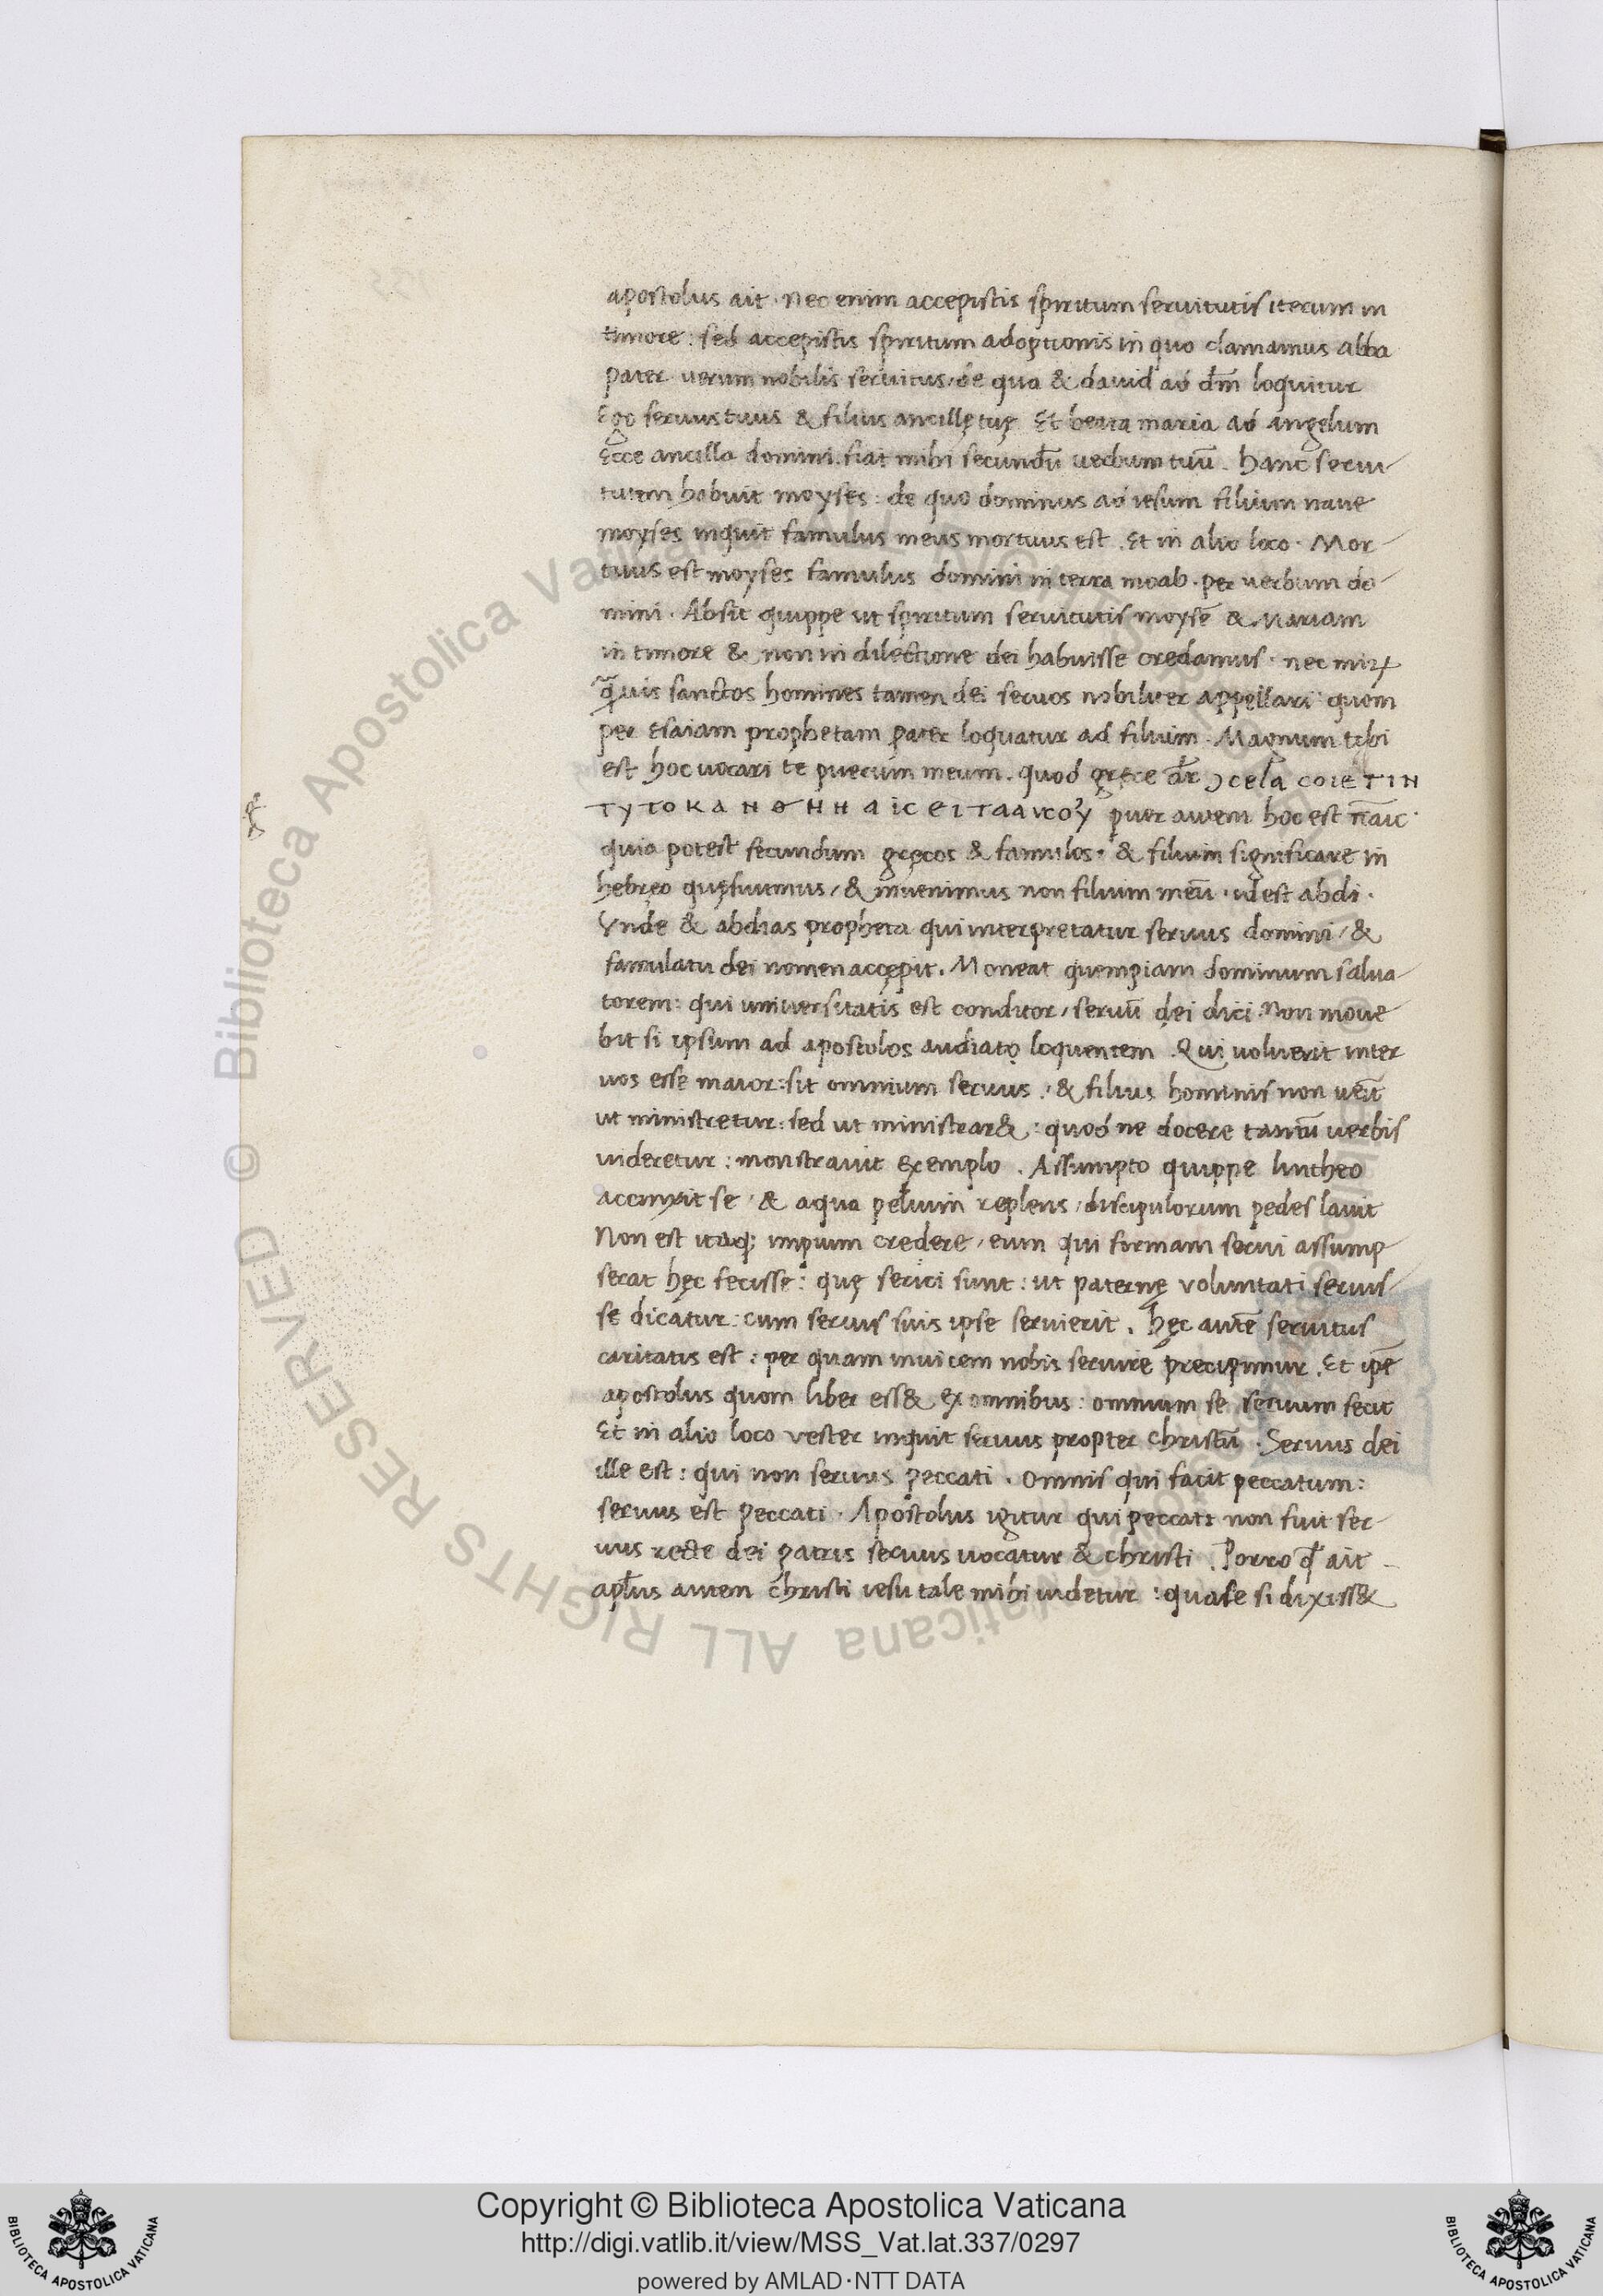 apostolus ait · Nec enim accepistis spiritum seruitutis iterum in
timore : sed accepistis spiritum adoptionis in quo clamamus abba
pater verum nobilis seruitus / de qua & dauid ad dm̄ loquitur
Ego seruus tuus & filius ancillę tuę Et beata maria ad angelum
Ecce ancilla domini . fiat mihi secundū uerbum tuū . hanc serui-
tutem habuit moyses : de quo dominus ad iesum filium naue
moyses inquit famulus meus mortuus est . Et in alio loco · Mor-
tuus est moyses famulus domini in terra moab · per uerbum do-
mini · Absit quippe ut spiritum seruitutis moysē & Mariam
in timore & non in dilectione dei habuisse credamus · nec miꝝ
q̄uis sanctos homines tamen dei seruos nobiliter appellari quom
per Esaiam prophetam pater loquatur ad filium . Magnum tibi
est hoc uocari te puerum meum . quod gręce dr̄
puer autem hoc est
quia potest secundum gręcos & famulos · & filium significare in
hebreo quęsiuimus / & inuenimus non filium meū · id est abdi ·
Vnde & abdias propheta qui interpretatur seruus domini / &
famulatu dei nomen accępit . Moneat quempiam dominum salua-
torem : qui uniuersitatis est conditor / seruū dei dici . Non moue
bit si ipsum ad apostolos audiat loquentem . Qui uoluerit inter
uos esse maior : sit omnium seruus . / & filius hominis non ueīt
ut ministretur : sed ut ministrar& : quod ne docere tantū uerbis
uideretur : monstrauit exemplo . Assumpto quippe lintheo
accinxit se / & aqua peluim replens / discipulorum pedes lauit
Non est itaq; impium credere / eum qui formam serui assump
serat hęc fecisse : quę serici sunt : ut paternę voluntati seruis-
se dicatur : cum seruis suis ipse seruierit . hęc autē seruitus
caritatis est : per quam inuicem nobis seruire precipimur . Et ip̄e
apostolus quom liber ess& ex omnibus : omnium se seruum fecit
Et in alio loco vester inquit seruus propter christū . Seruus dei
ille est : qui non seruus peccati . omnis qui facit peccatum :
seruus est peccati · Apostolus igitur qui peccati non fuit ser-
uus recte dei patris seruus uocatur & christi . Porro ait
apl̄us autem christi iesu tale mihi uidetur : quale si dixiss&
Copyright © Biblioteca Apostolica Vaticana
http://digi.vatlib.it/view/MSS_Vat.lat.337/0297
powered by AMLAD·NTT DATA
BIBLIOTECA APOSTOLICA VATICANA
BIBLIOTECA APOSTOLICA VATICANA
© Biblioteca Apostolica Vaticana ALL RIGHTS RESERVED